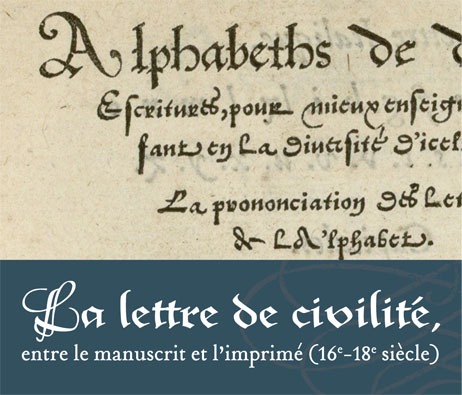 Alphabeths de d
Escritures, pour mieux enseign
fant en la diversité d'icel
La prononciation des Let
& L'Alphabet.
La lettre de civilité,
entre le manuscrit et l'imprimé (16e-18e siècle)